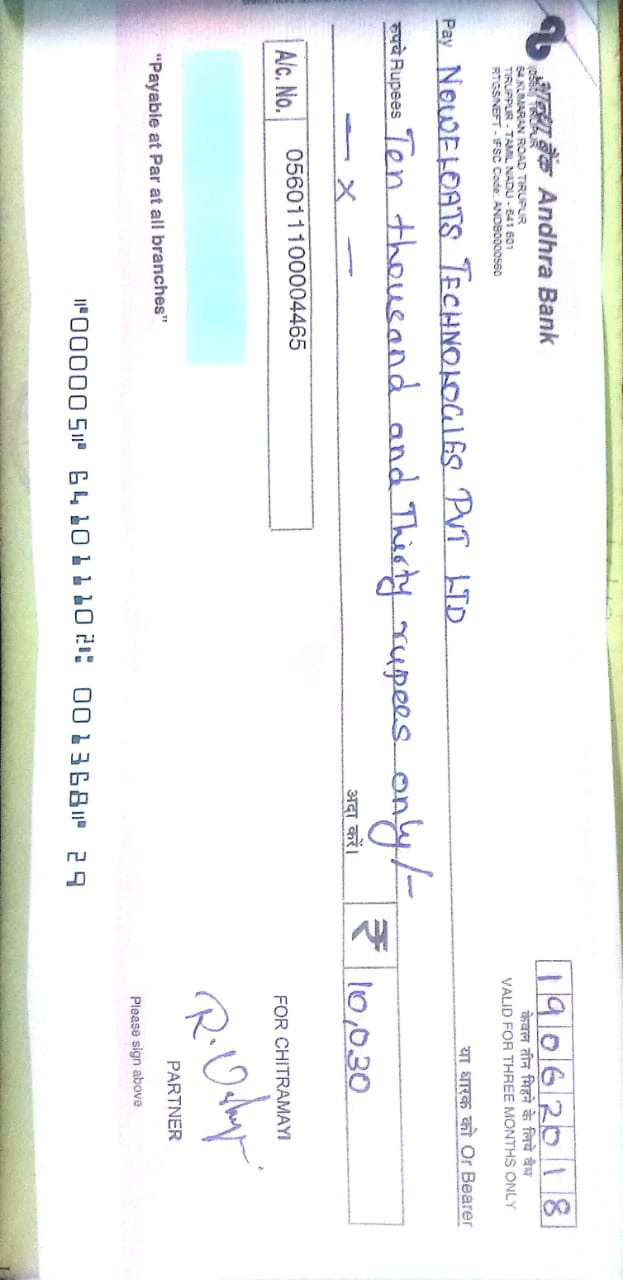 आन्ध्रा बैंक Andhra Bank
64,KUMARAN ROAD, TIRUPUR
TIRUPPUR - TAMIL NADU - 641 601
RTGS/NEFT - IFSC Code: ANDB0000560
19062018
केवल तीन महिने के लिये वैध
VALID FOR THREE MONTHS ONLY
Pay NOWFLOATS TECHNOLOGIES PVT LTD या धारक को Or Bearer
रुपये Rupees Ten thousand and Thirty rupees only/-
— x — अदा करें। ₹ 10,030
A/c. No. 056011100004465
FOR CHITRAMAYI
PARTNER
"Payable at Par at all branches"
Please sign above
⑈000005⑈ 641011102⑆ 001368⑈ 29